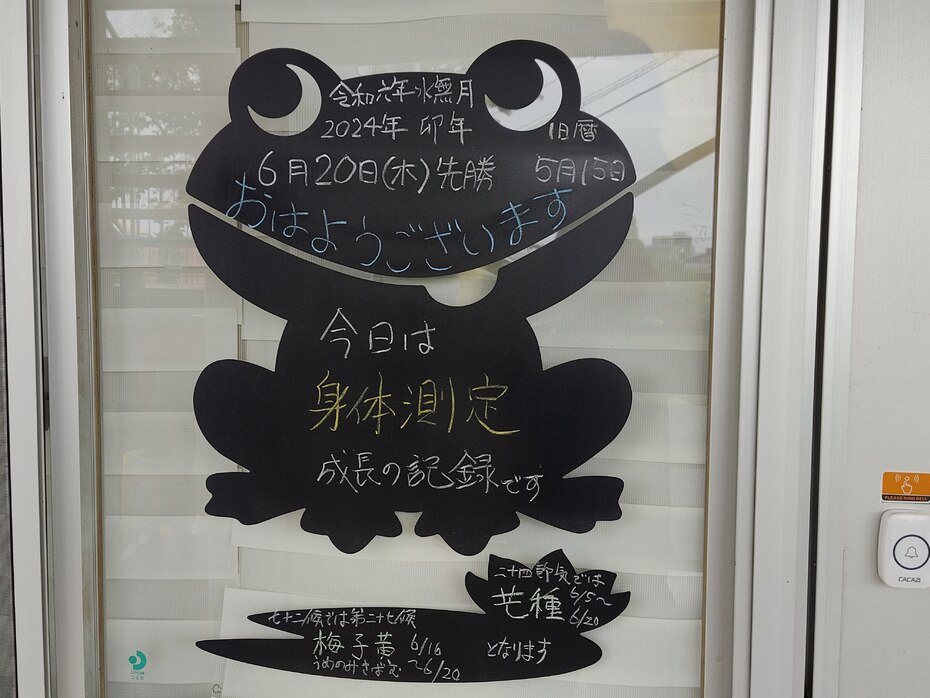 令和六年水無月
2024年 卯年 旧暦
6月20日(木)先勝 5月15日
おはようございます
今日は
身体測定
成長の記録です
二十四節気では
芒種 6/5〜
6/20
となります
七十二候では第二十七候
梅子黄 6/16
うめのみきばむ 〜6/20
PLEASE RING BELL
CACAZI